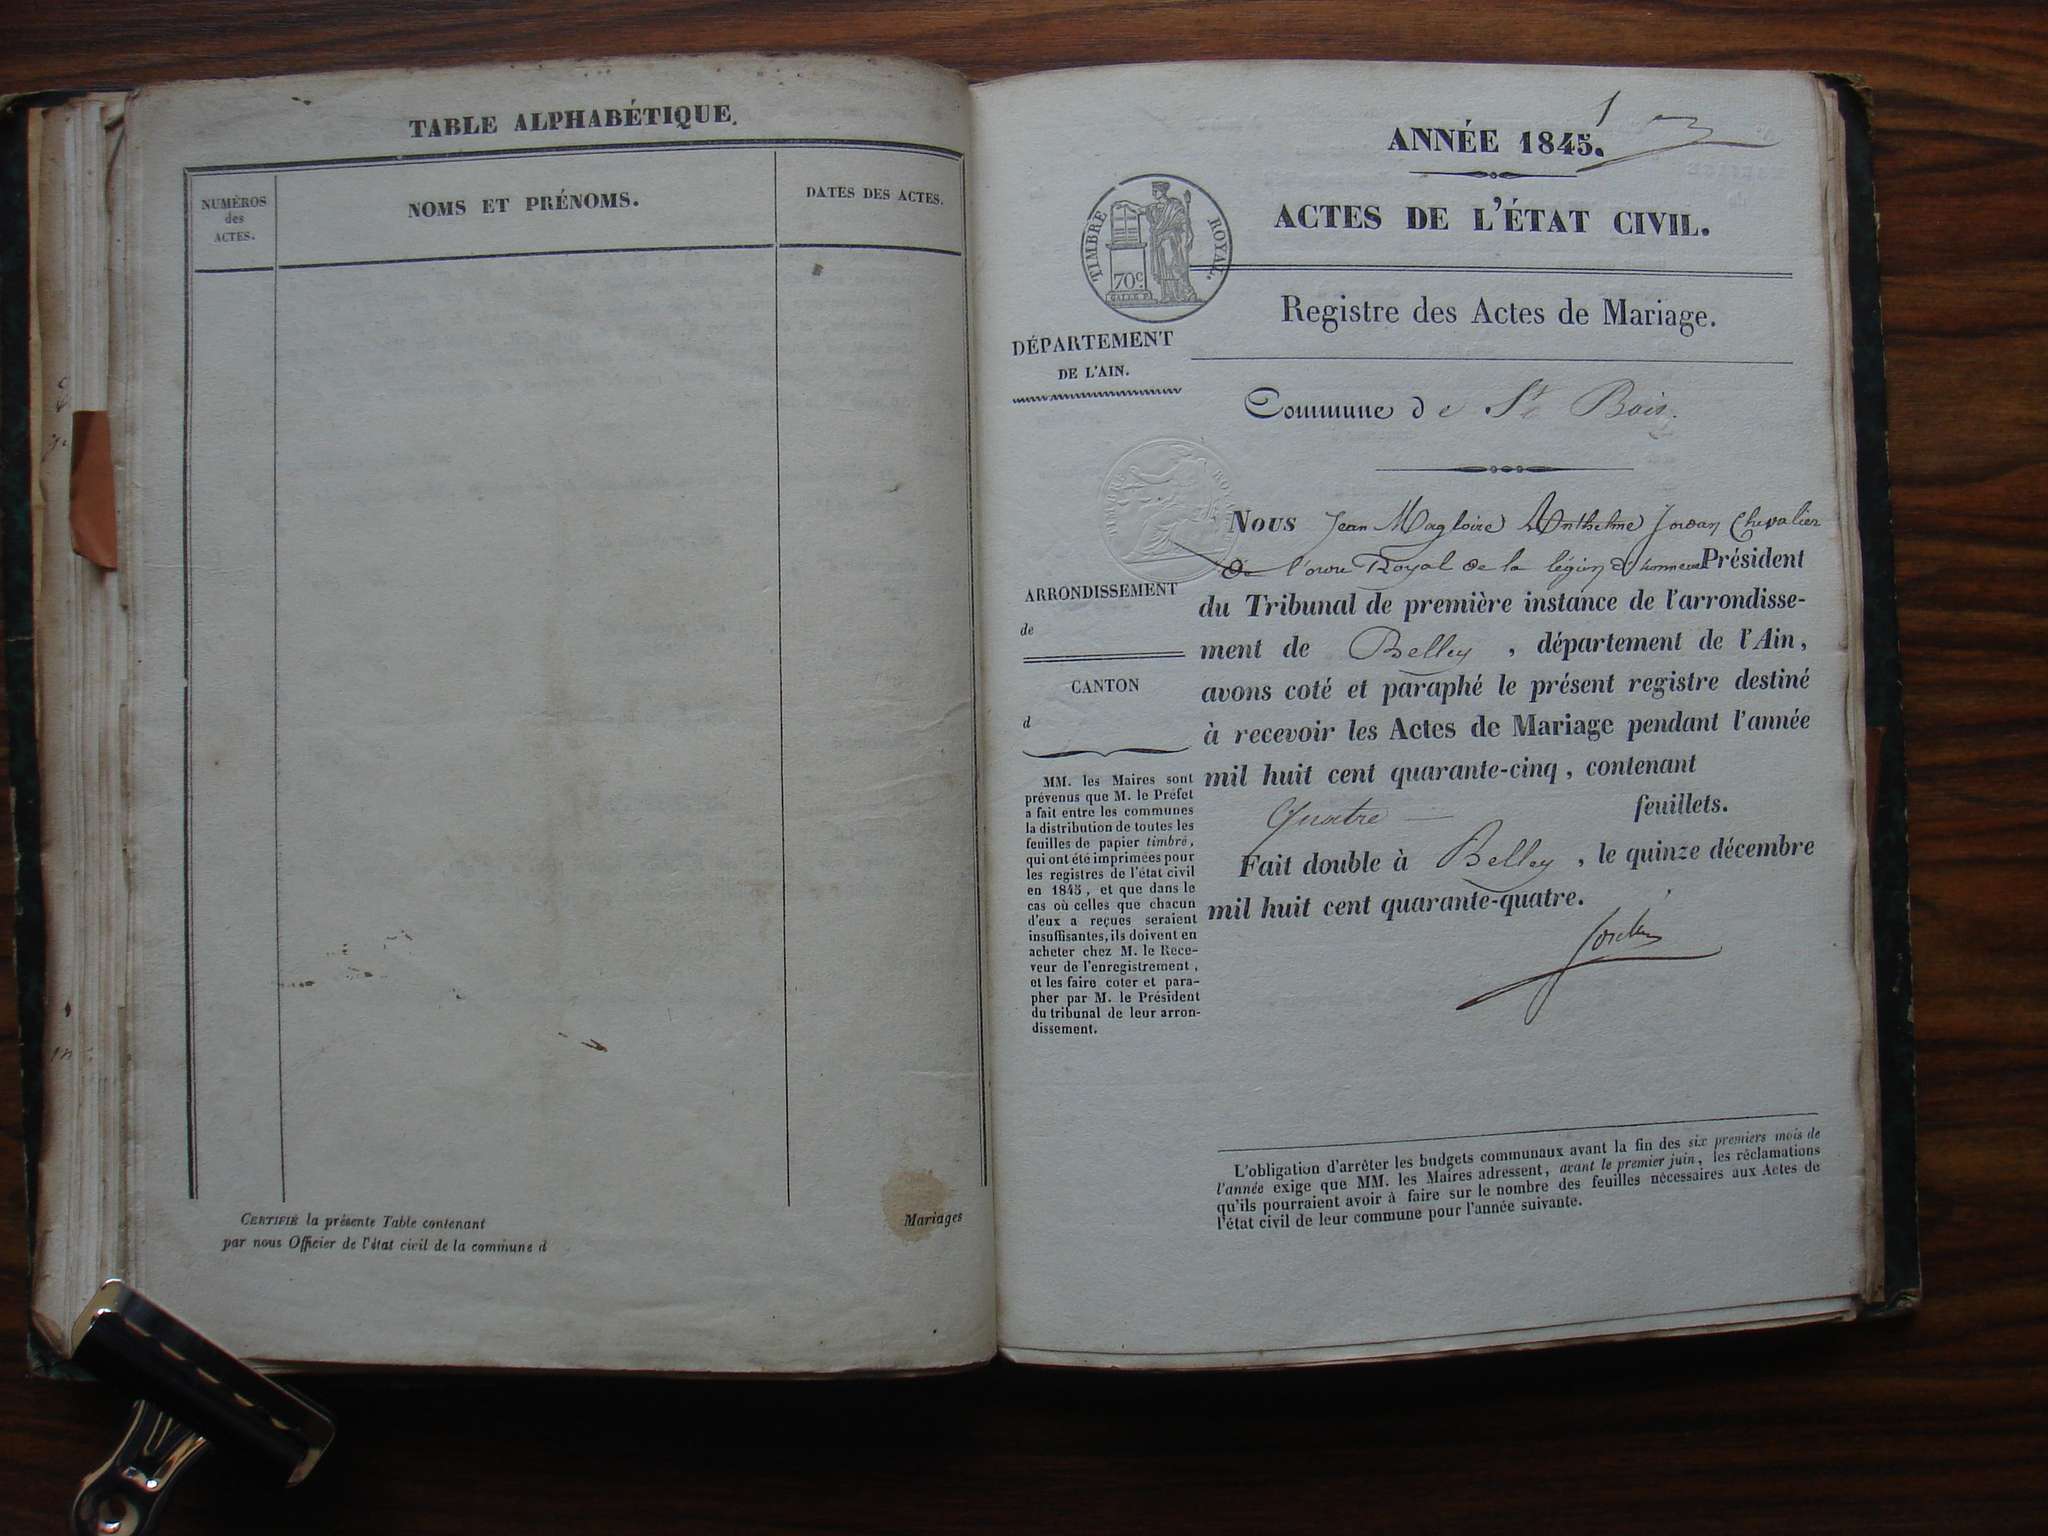 TABLE ALPHABÉTIQUE.
NUMÉROS
des
ACTES.
NOMS ET PRÉNOMS.
DATES DES ACTES.
CERTIFIÉ la présente Table contenant
Mariages
par nous Officier de l'état civil de la commune d
1
ANNÉE 1845.
TIMBRE ROYAL.
70c
ACTES DE L'ÉTAT CIVIL.
Registre des Actes de Mariage.
DÉPARTEMENT
DE L'AIN.
Commune de St Bois.
Nous Jean Magloire Anthelme Jordan Chevalier
De l'ordre Royal de la légion d'honneur Président
du Tribunal de première instance de l'arrondisse-
ment de Belley, département de l'Ain,
avons coté et paraphé le présent registre destiné
à recevoir les Actes de Mariage pendant l'année
mil huit cent quarante-cinq, contenant
Quatre — feuillets.
Fait double à Belley, le quinze décembre
mil huit cent quarante-quatre.
Jordan
ARRONDISSEMENT
de
CANTON
d
MM. les Maires sont
prévenus que M. le Préfet
a fait entre les communes
la distribution de toutes les
feuilles de papier timbré,
qui ont été imprimées pour
les registres de l'état civil
en 1845, et que dans le
cas où celles que chacun
d'eux a reçues seraient
insuffisantes, ils doivent en
acheter chez M. le Rece-
veur de l'enregistrement,
et les faire coter et para-
pher par M. le Président
du tribunal de leur arron-
dissement.
L'obligation d'arrêter les budgets communaux avant la fin des six premiers mois de
l'année exige que MM. les Maires adressent, avant le premier juin, les réclamations
qu'ils pourraient avoir à faire sur le nombre des feuilles nécessaires aux Actes de
l'état civil de leur commune pour l'année suivante.